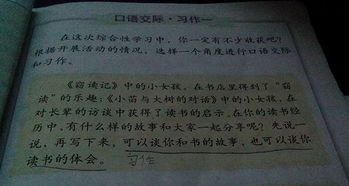 口语交际·习作一
在这次综合性学习中，你一定有不少收获吧？
根据开展活动的情况，选择一个角度进行口语交际
和习作。
《窃读记》中的小女孩，在书店里得到了“窃
读”的乐趣；《小苗与大树的对话》中的小女孩，在
对长辈的访谈中获得了读书的启示。在你的读书经
历中，有什么样的故事和大家一起分享呢？先说一
说，再写下来，可以谈你和书的故事，也可以谈你
读书的体会。 习作